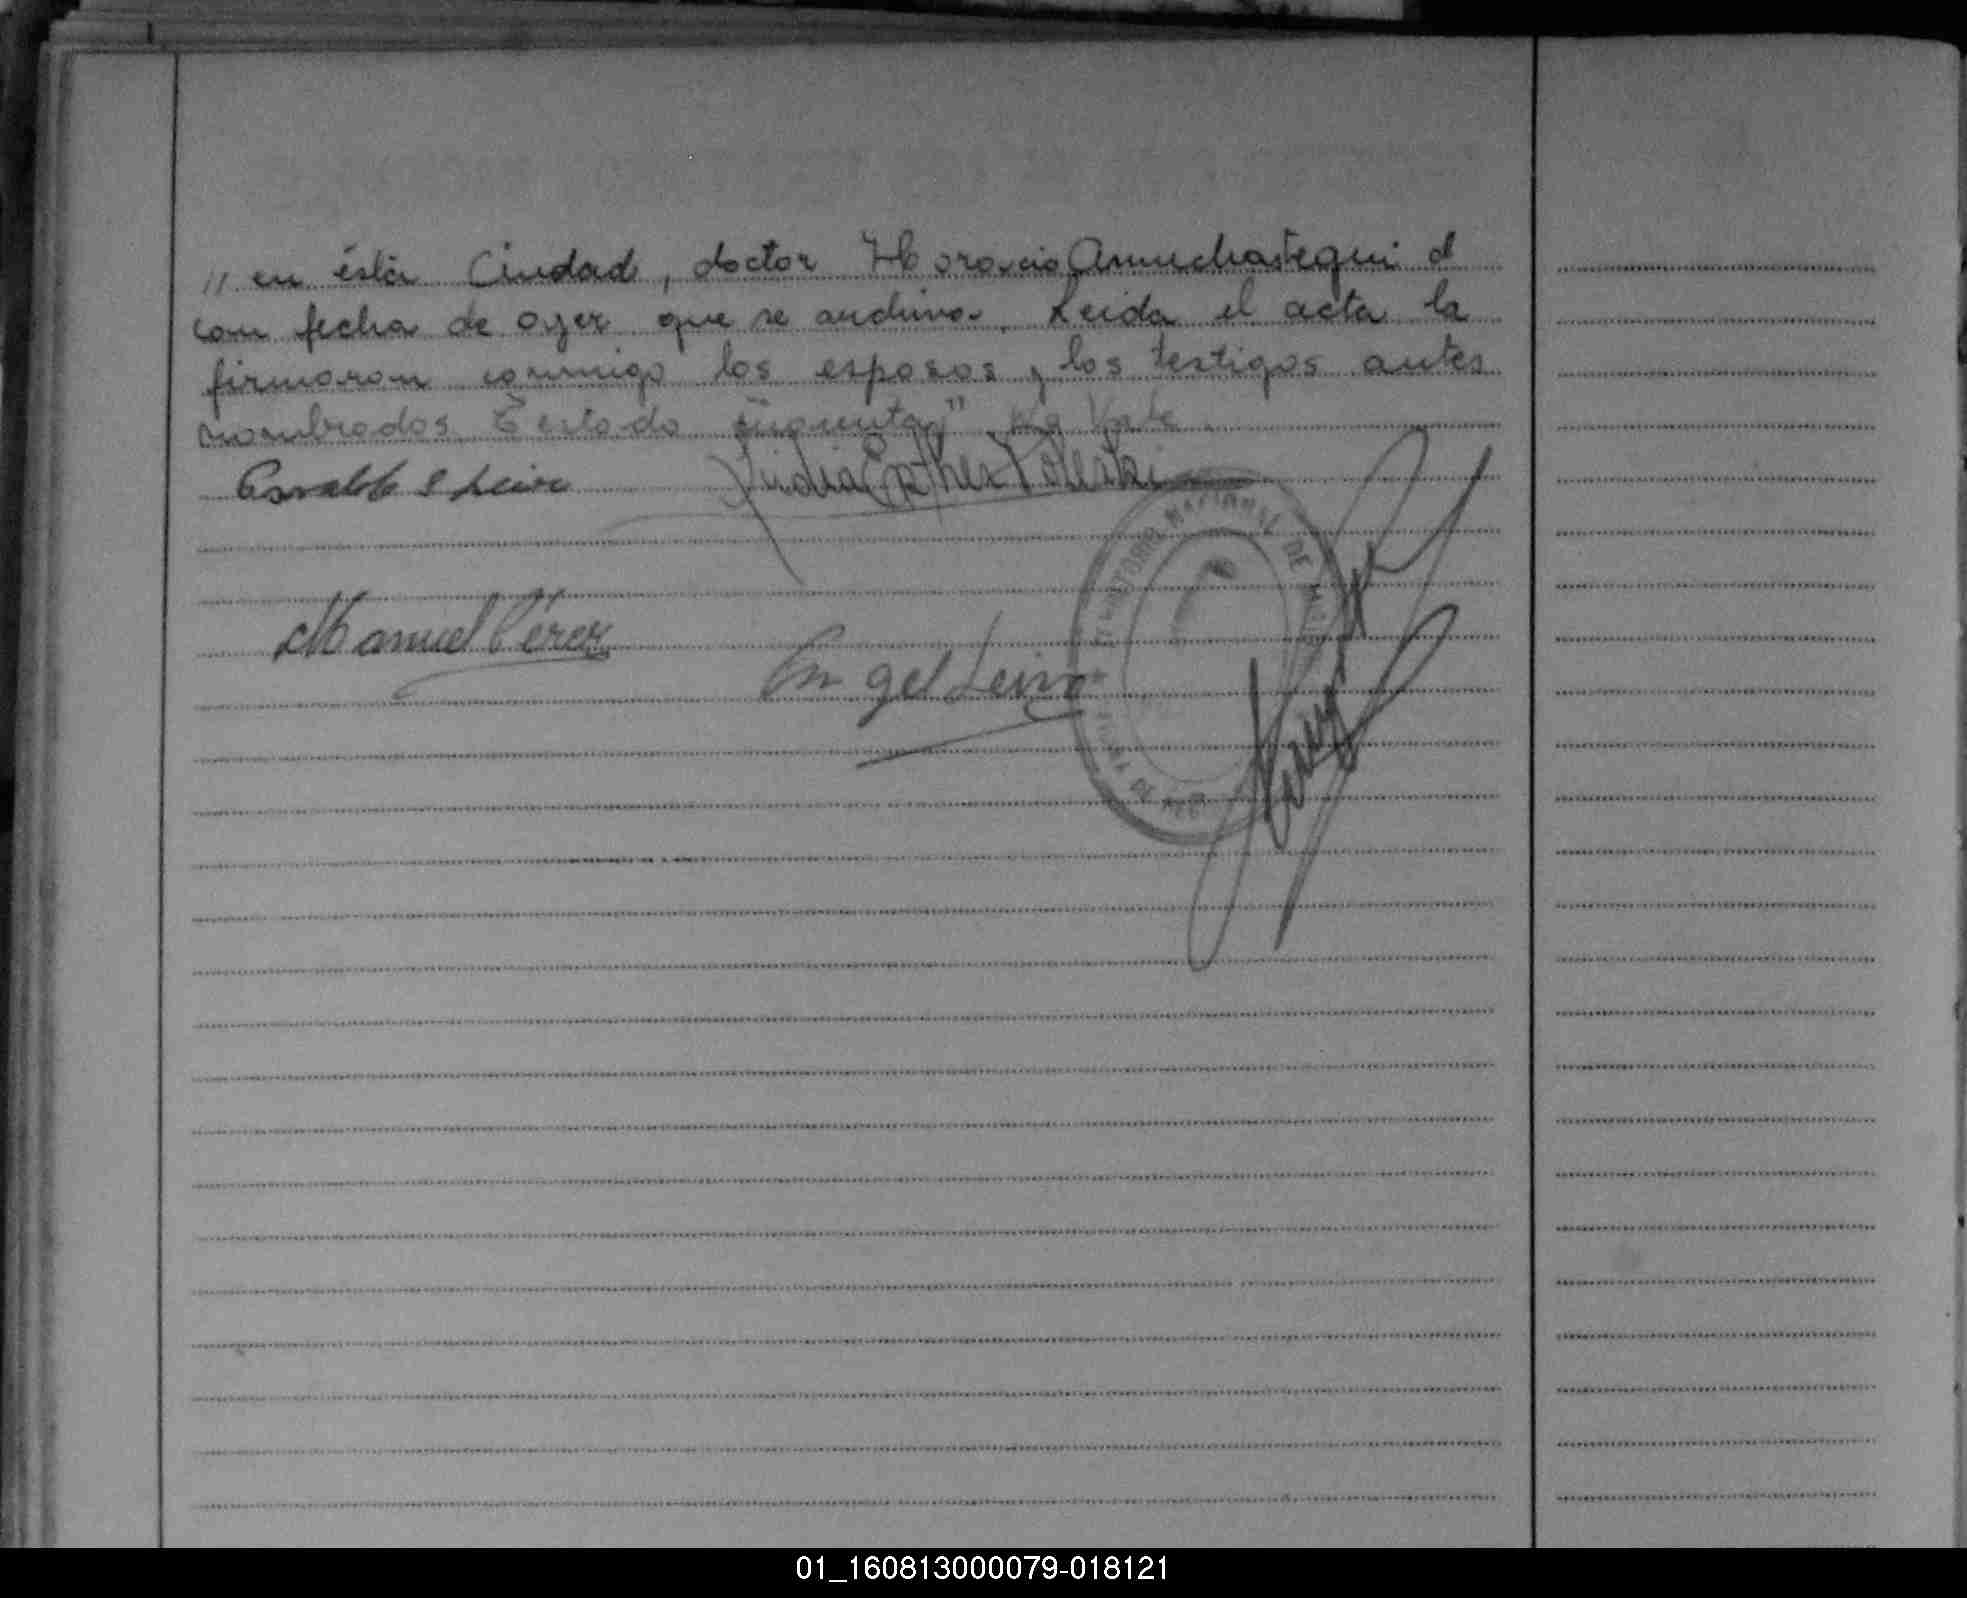 // en ésta Ciudad, doctor Horacio Amuchastegui el
con fecha de ayer que se archiva. Leida el acta la
firmaron conmigo los esposos y los testigos antes
nombrados. Testado No Vale.
Osvaldo Leiva
Lidia Esther
TERRITORIO NACIONAL DE
Manuel Pérez
Angel Leiva
01_160813000079-018121